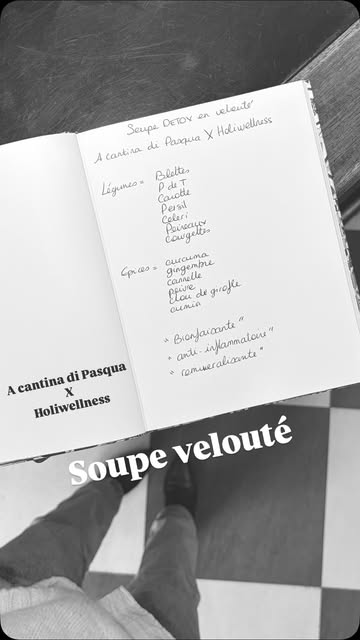 Soupe DETOX en velouté
A cantina di Pasqua X Holiwellness
Légumes =
Blettes
P de T
Carotte
Persil
Céleri
Poireaux
Courgettes
épices =
curcuma
gingembre
cannelle
poivre
clou de girofle
cumin
" Bienfaisante "
" anti-inflammatoire "
" reminéralisante "
A cantina di Pasqua
X
Holiwellness
Soupe velouté